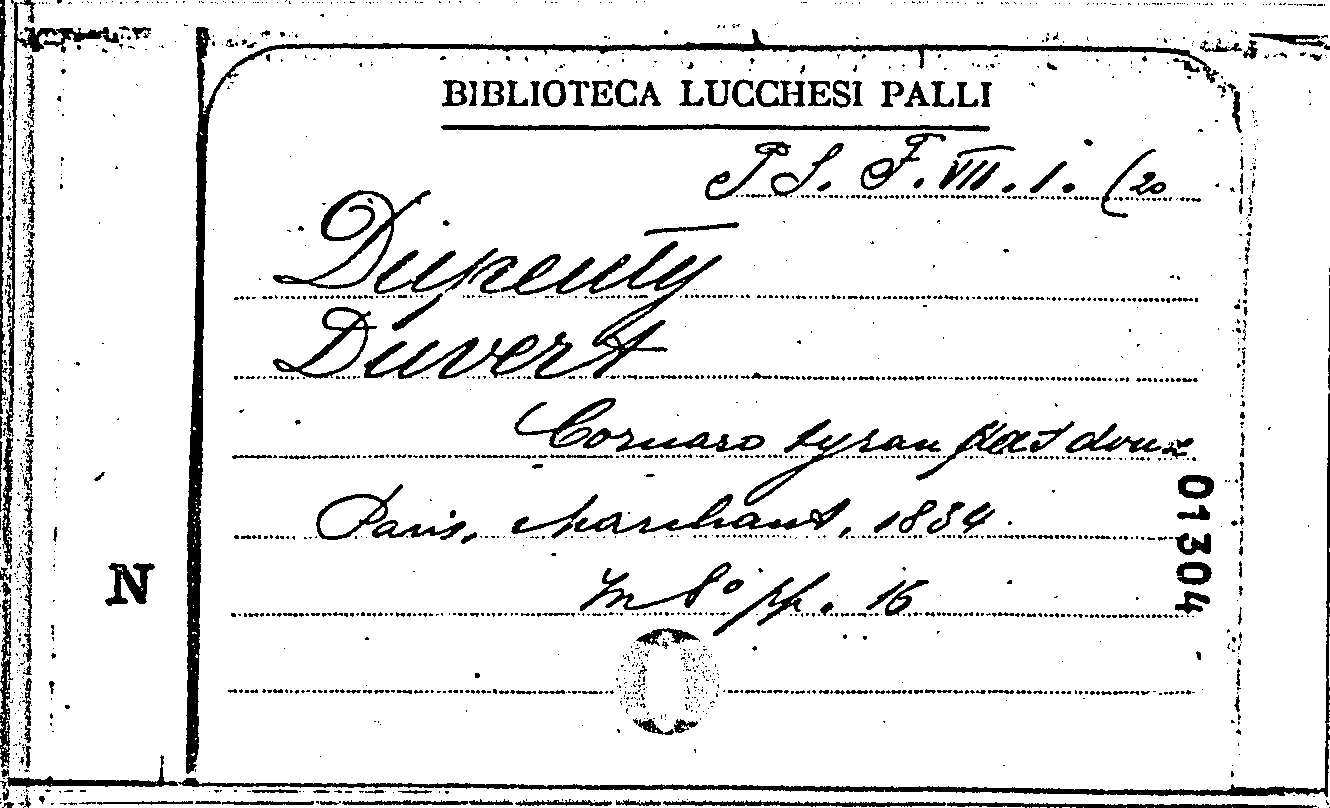 BIBLIOTECA LUCCHESI PALLI
P S. F. VII. 1. (20
Dupeuty
Duvert
Cornaro tyran pas doux
Paris, Marchant, 1834.
in 8° pp. 16
01304
N